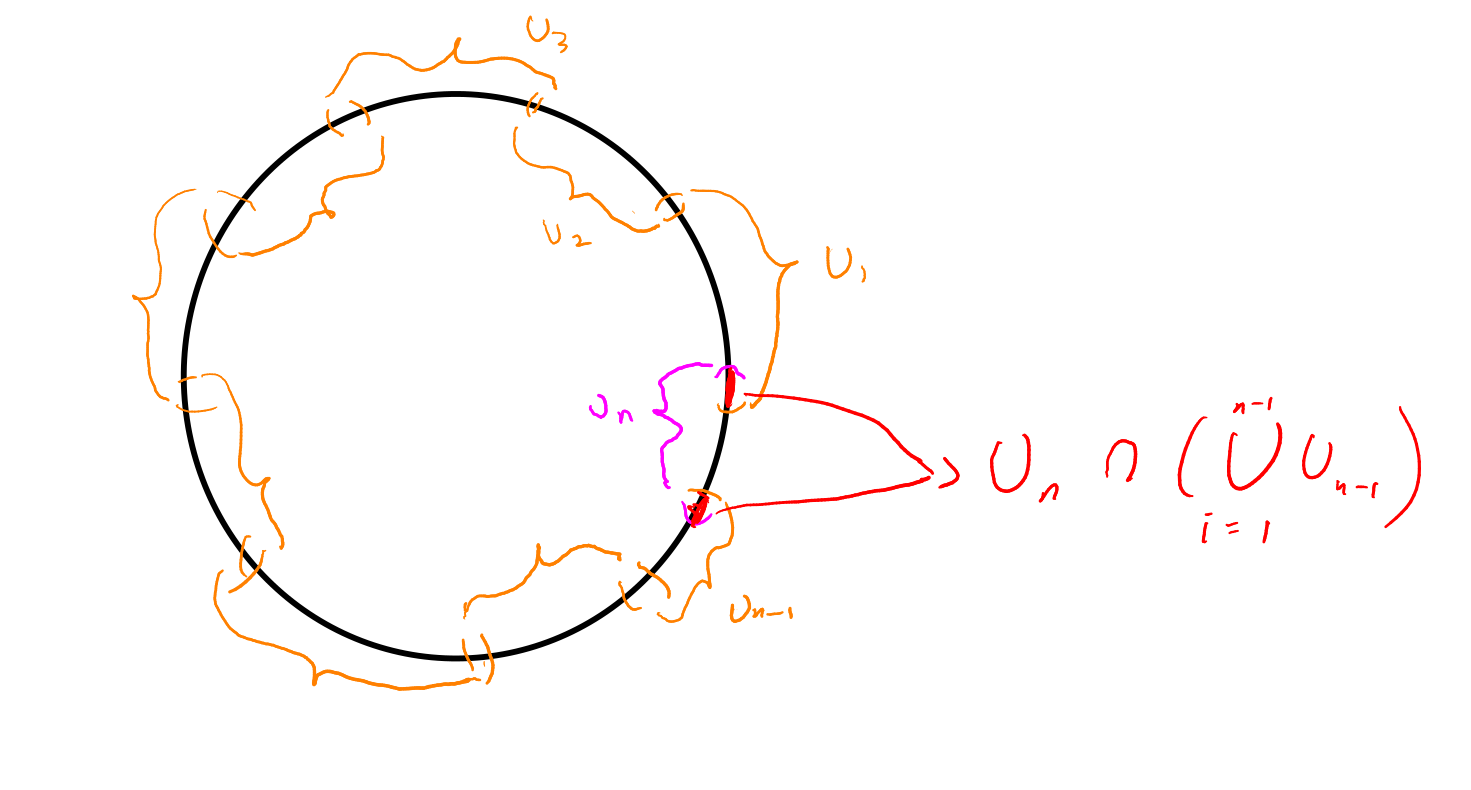 U₃
U₂
U₁
Uₙ
Uₙ ∩ (⋃ᵢ₌₁ⁿ⁻¹ Uₙ₋₁)
Uₙ₋₁